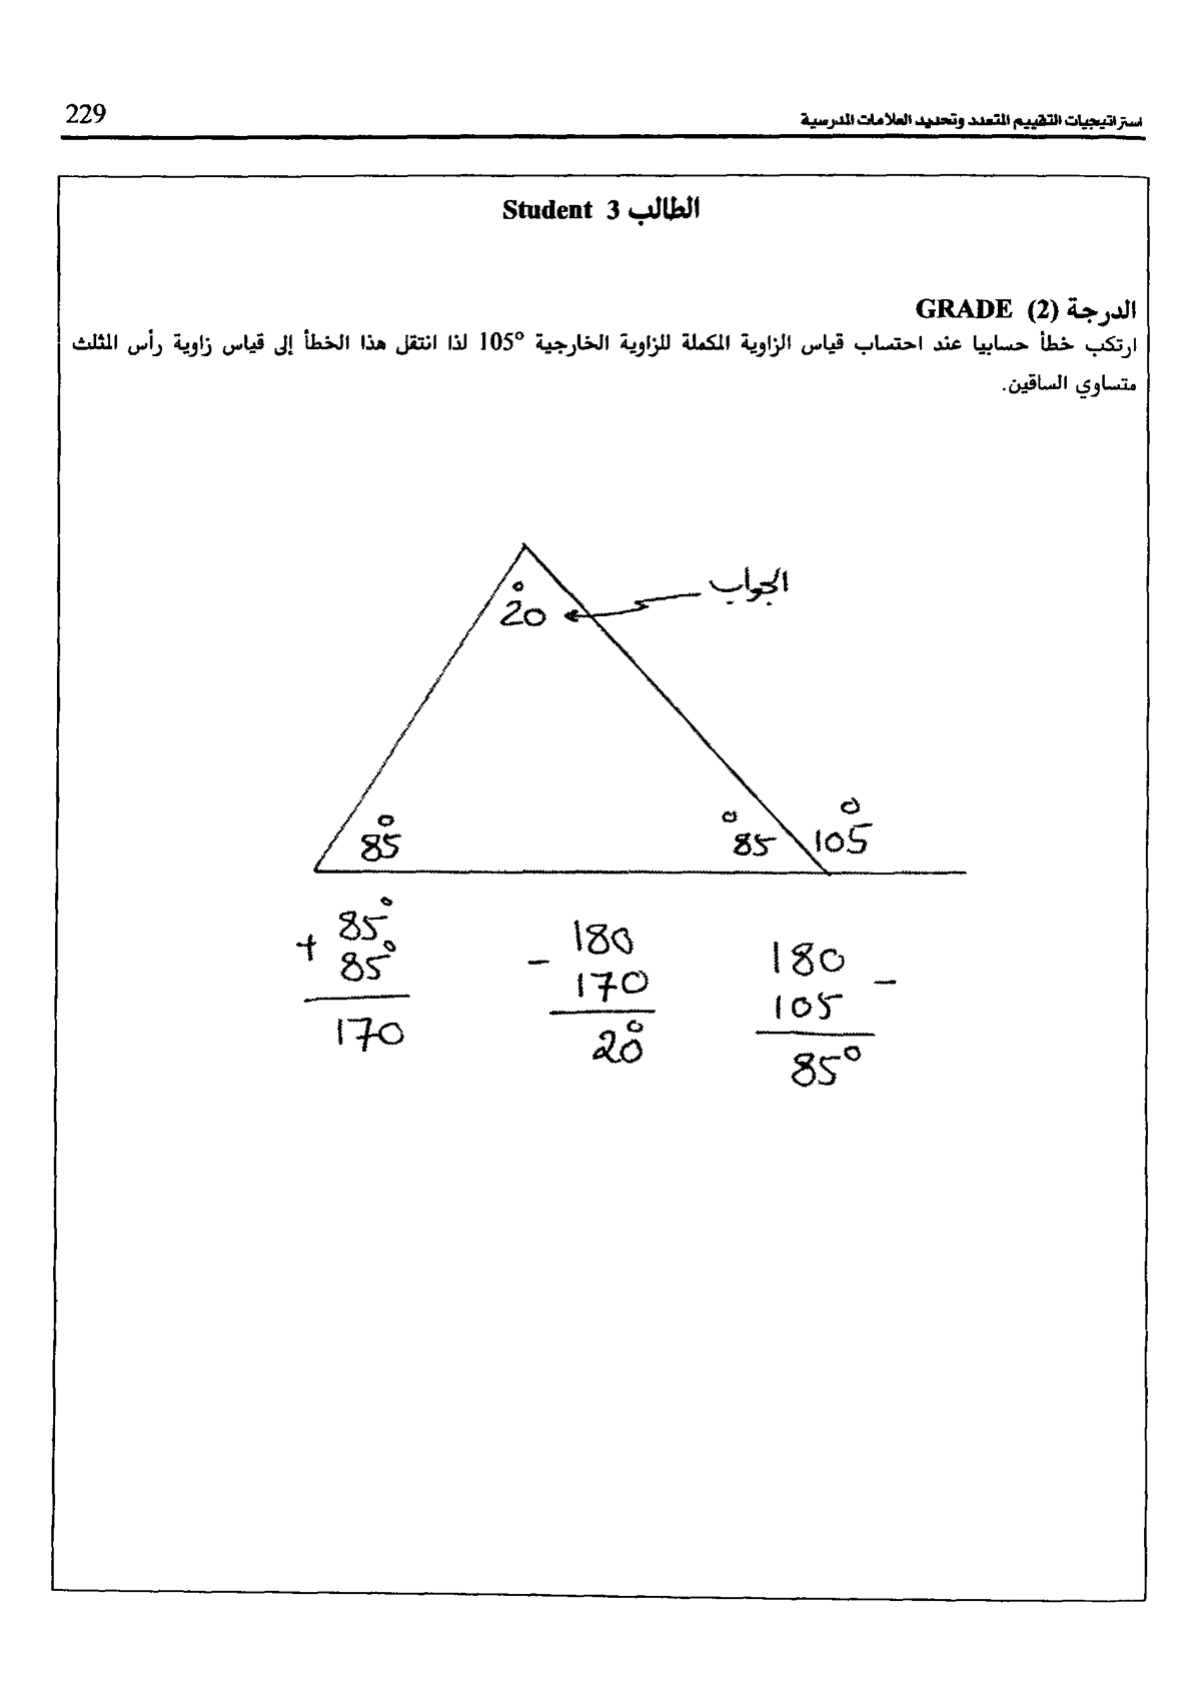 229
استراتيجيات التقييم المتعدد وتحديد العلامات المدرسية
الطالب Student 3
الدرجة GRADE (2)
ارتكب خطأ حسابيا عند احتساب قياس الزاوية المكملة للزاوية الخارجية 105° لذا انتقل هذا الخطأ إلى قياس زاوية رأس المثلث
متساوي الساقين.
الجواب
20°
85°
85°
105°
+ 85°
85°
170
- 180
170
20°
180 -
105
85°